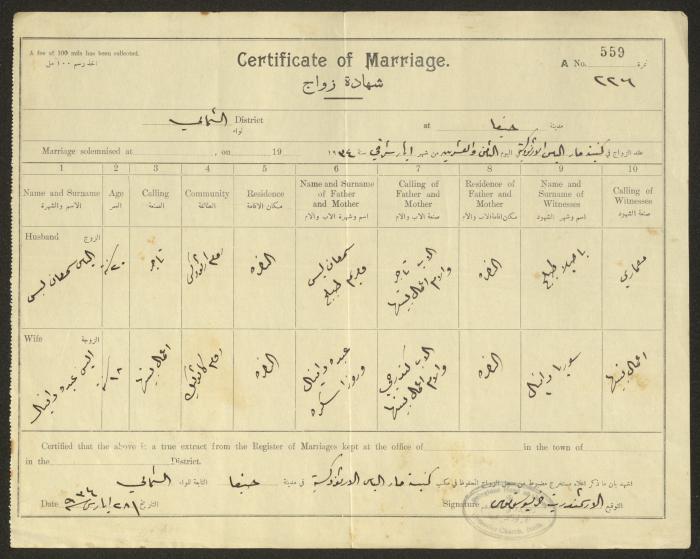 A fee of 100 mils has been collected.
اخذ رسم ١٠٠ مل
Certificate of Marriage.
شهادة زواج
A No. 559 نمرة
٢٢٦
الشمالي District لواء
at حيفا مدينة
Marriage solemnised at , on 19
عقد الزواج في كنيسة مار الياس الارثوذكسية اليوم الثامن والعشرين من شهر ايار شرقي سنة ١٩٣٤
1 2 3 4 5 6 7 8 9 10
Name and Surname الاسم والشهرة
Age العمر
Calling الصنعة
Community الطائفة
Residence مكان الاقامة
Name and Surname of Father and Mother اسم وشهرة الاب والام
Calling of Father and Mother صنعة الاب والام
Residence of Father and Mother مكان اقامة الاب والام
Name and Surname of Witnesses اسم وشهر الشهود
Calling of Witnesses صنعة الشهود
Husband الزوج
الياس سمعان
٢٠
تاجر
روم ارثوذكس
الناصره
سمعان
مريم
الاب تاجر
والام اعمال بيتها
الناصره
معماري
Wife الزوجة
اليس عبده دانيال
١٨
اعمال بيتها
روم كاثوليك
الناصره
عبده دانيال
وروزا
الاب
والام اعمال بيتها
الناصره
دانيال
اعمال بيتها
Certified that the above is a true extract from the Register of Marriages kept at the office of in the town of
in the District.
اشهد بان ما ذكر اعلاه مستخرج مضبوط من سجل الزواج المحفوظ في مكتب كنيسة مار الياس الارثوذكسية في مدينة حيفا التابعة للواء الشمالي
Date ٢٨ ايار ش ٩٣٤ التاريخ
Signature الارشمندريت التوقيع